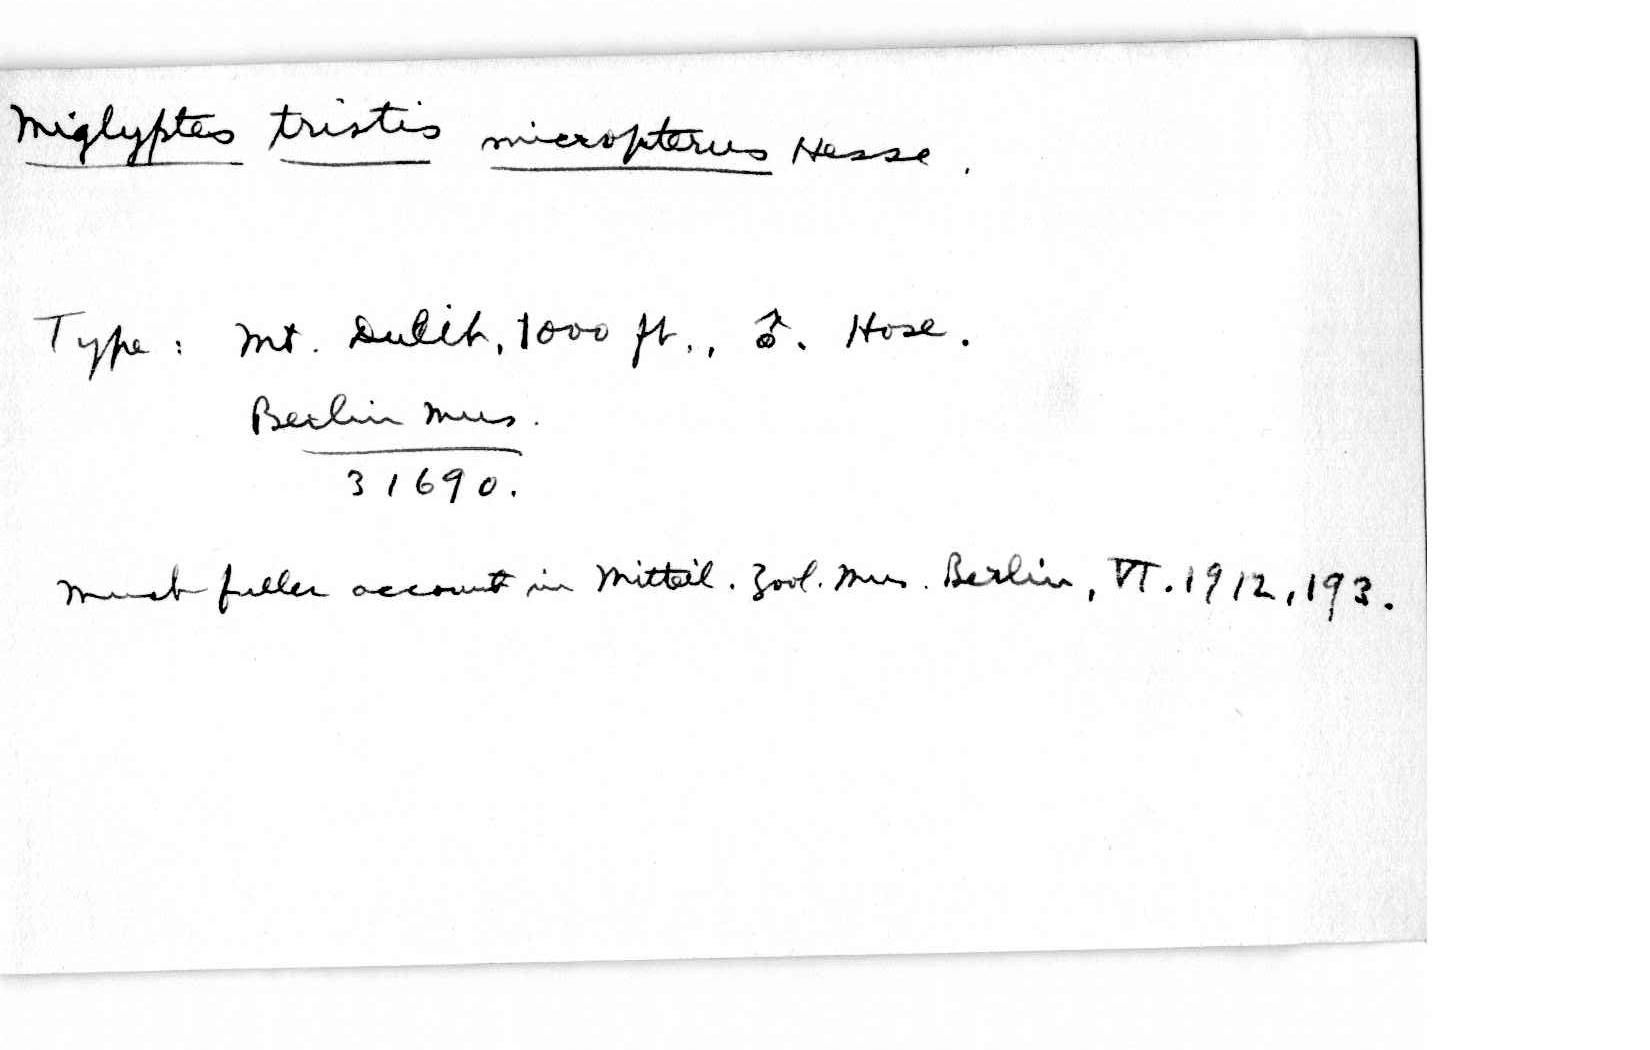 Miglyptes tristis micropterus Hesse.
Type: Mt. Dulit, 1000 ft., ♂. Hose.
Berlin Mus.
31690.
Much fuller account in Mitteil. Zool. Mus. Berlin, VI. 1912, 193.